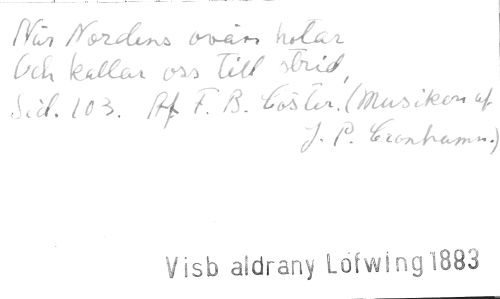 När Nordens ovän hotar
Och kallar oss till strid,
Sid. 103. Af F. B. Cöster. (Musiken af
J. P. Cronhamn.)
Visb aldrany Löfwing 1883